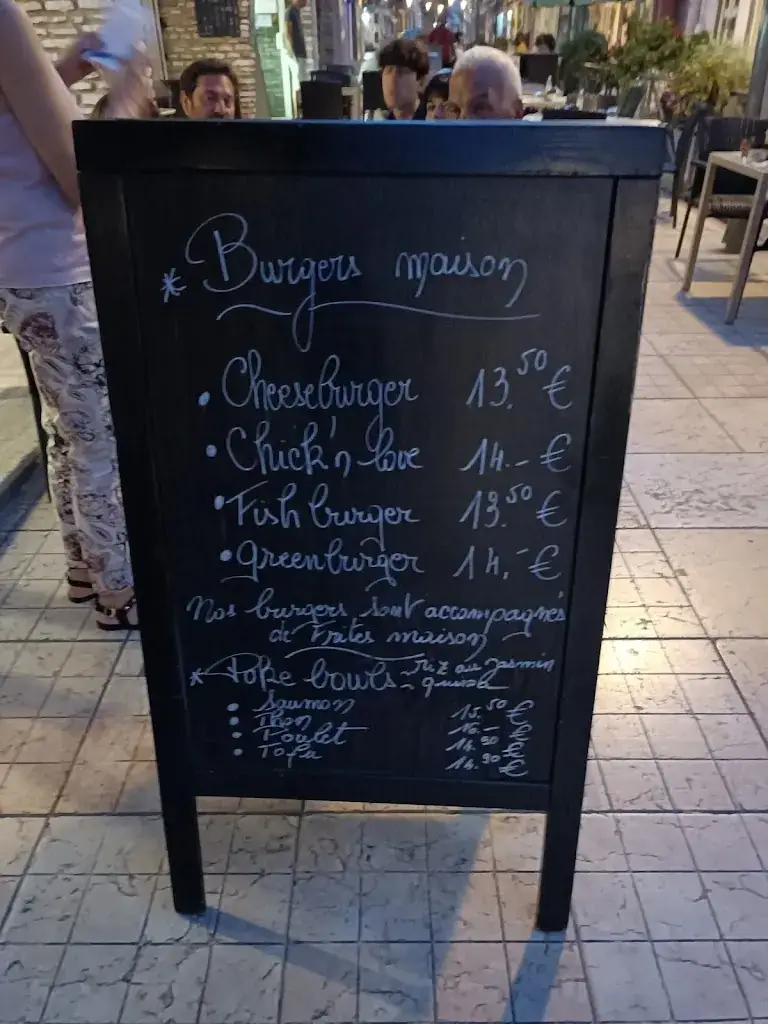 * Burgers maison
• Cheeseburger 13.50 €
• Chick'n love 14.- €
• Fish burger 13.50 €
• Greenburger 14.- €
Nos burgers sont accompagnés
de Frites maison
* Poke bowls - riz au jasmin
quinoa
• Saumon 15.50 €
• Thon 16.- €
• Poulet 14.90 €
• Tofu 14.90 €